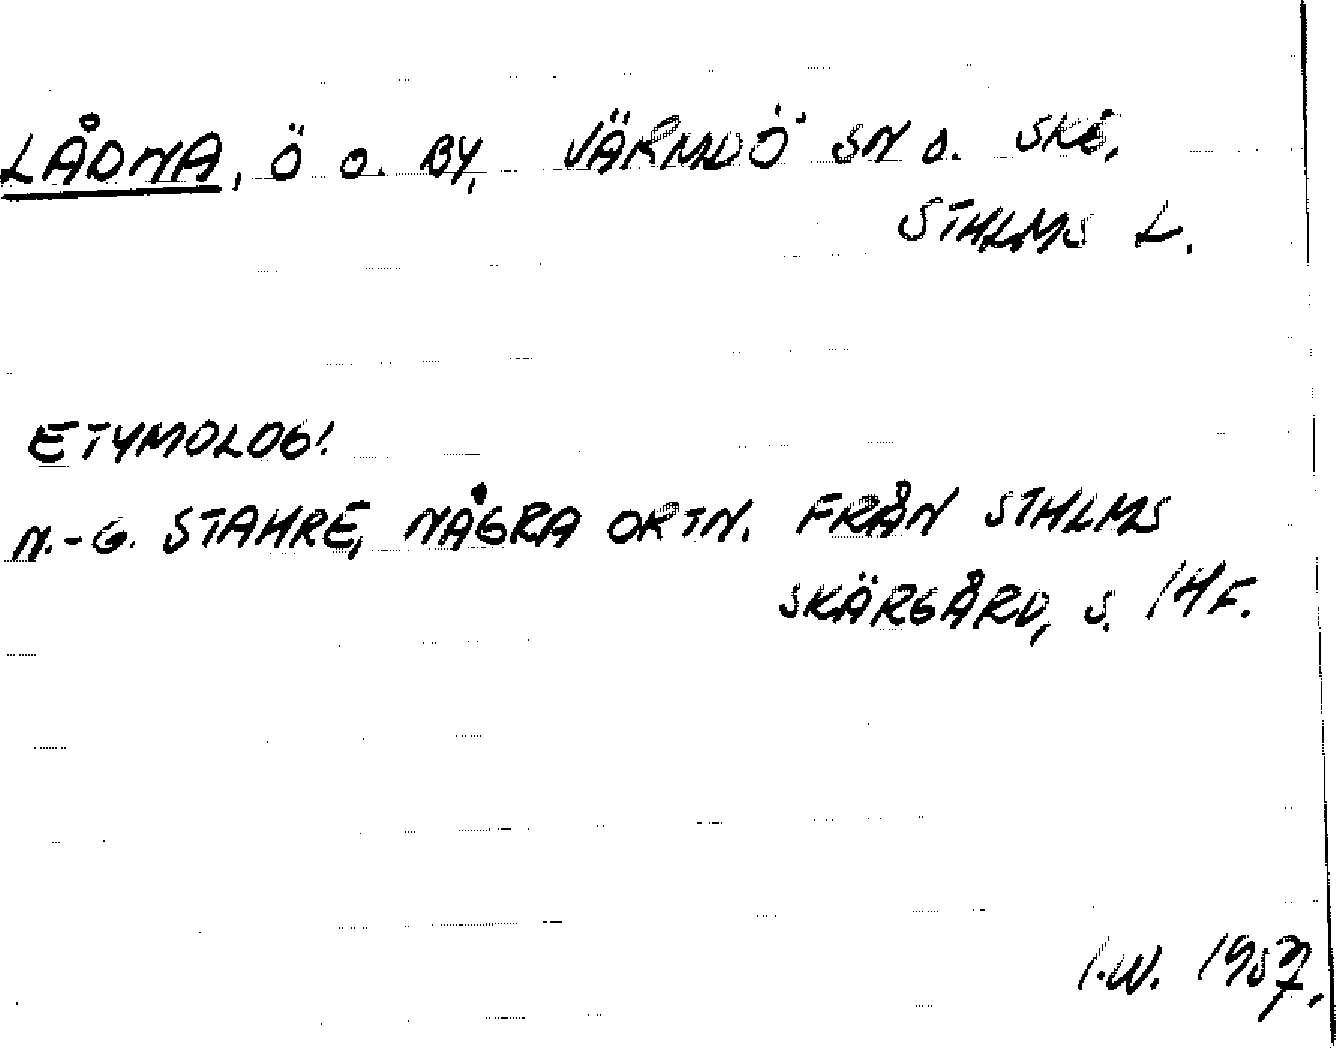 LÅDNA, Ö O. BY, VÄRMDÖ SN O. SKE,
STHLMS L.
ETYMOLOGI
N.-G. STAHRE, NÅGRA ORTN. FRÅN STHLMS
SKÄRGÅRD, S. 14 F.
I.W. 1957.